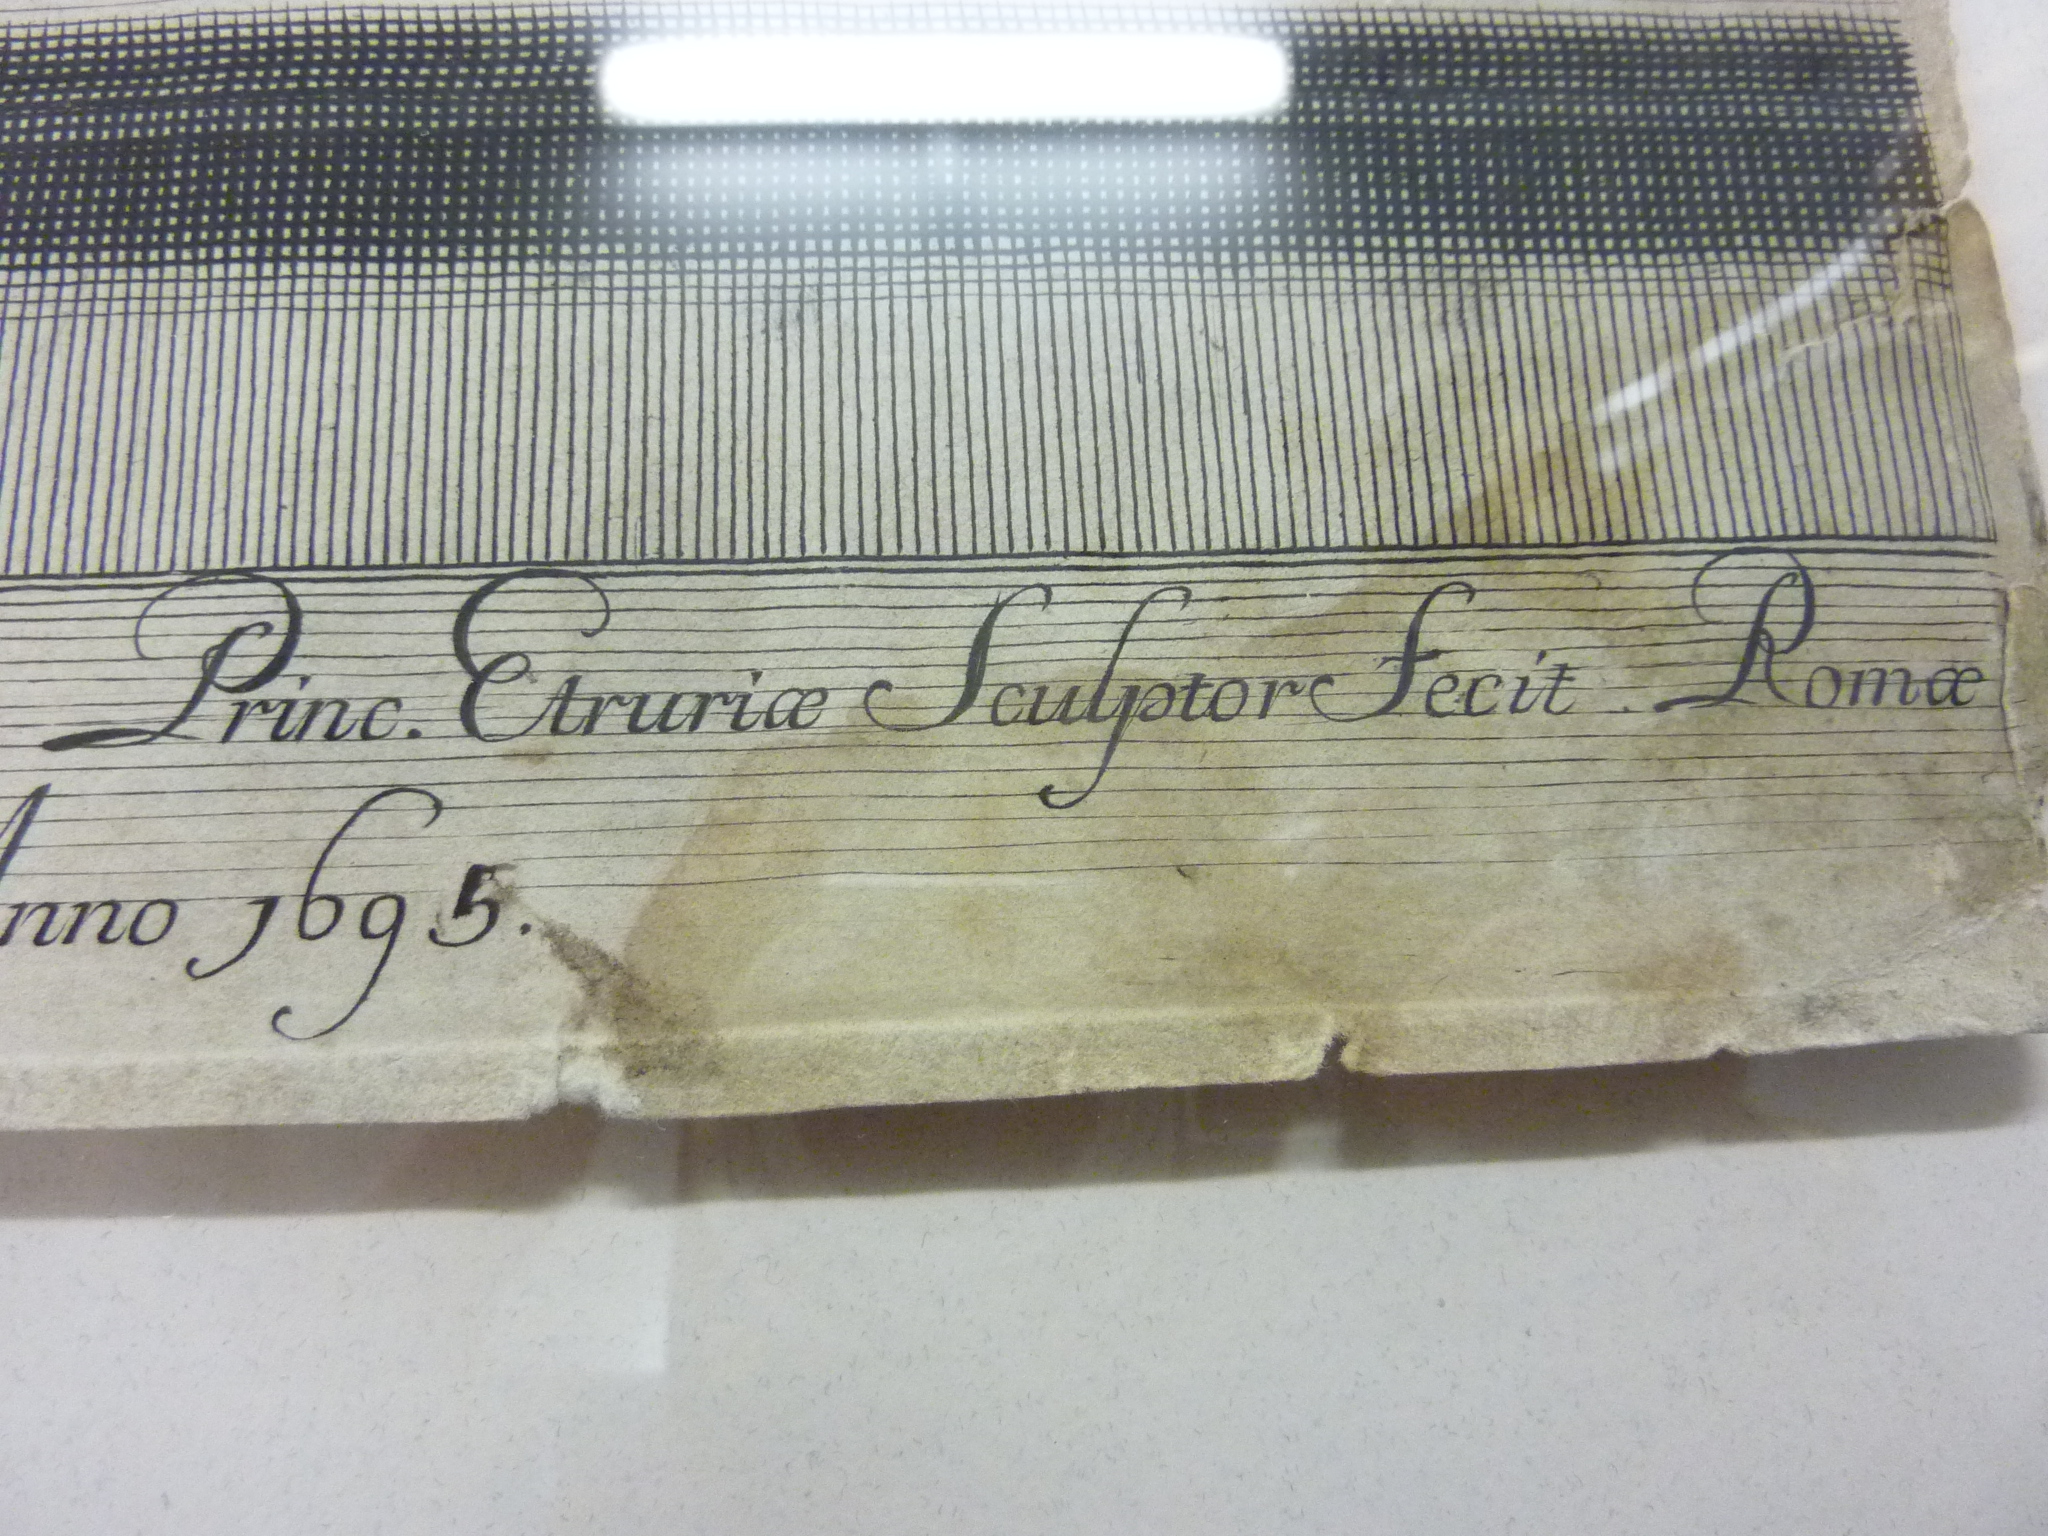 Princ. Etruriæ Sculptor Fecit. Romæ
Anno 1695.